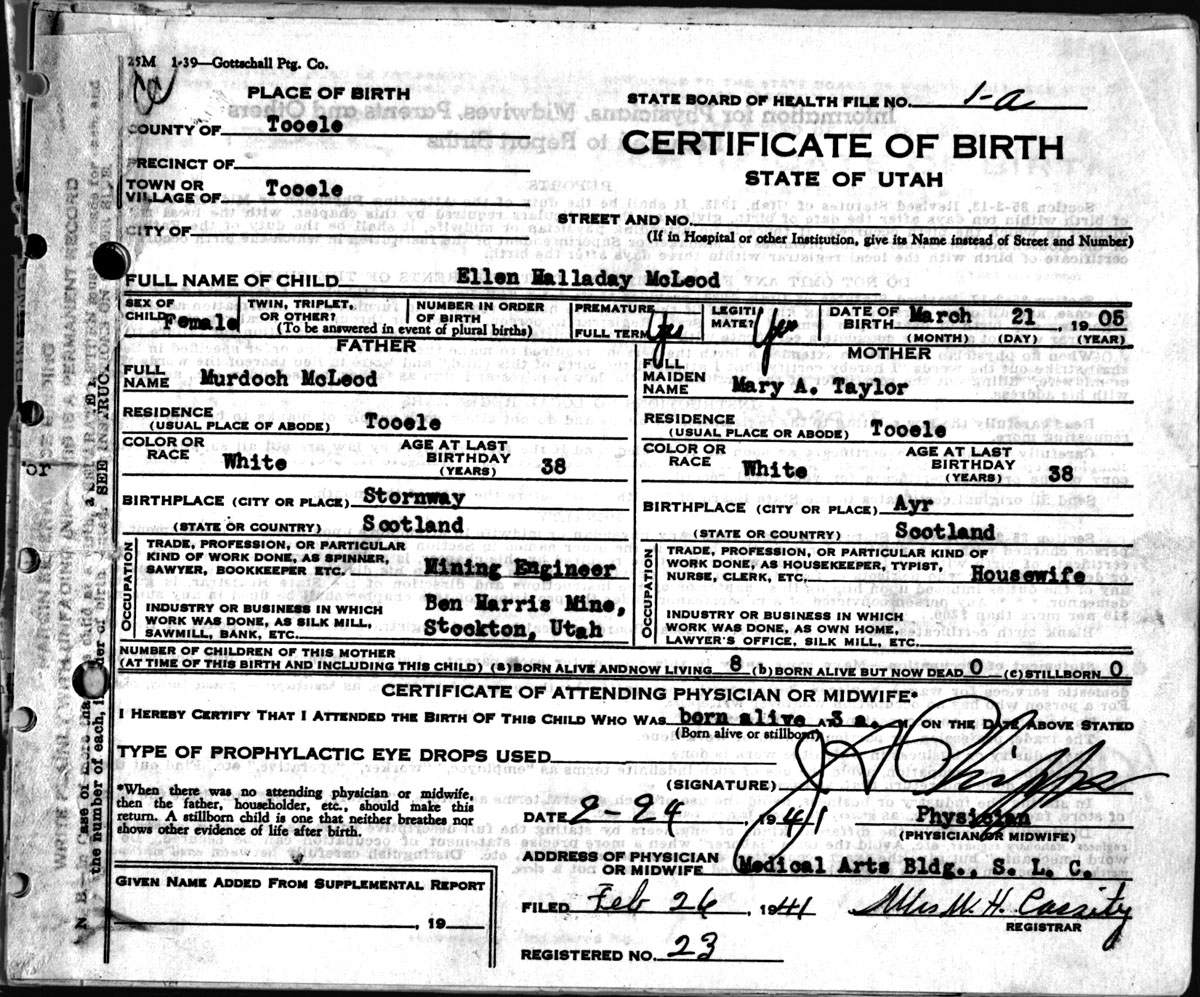 25M 1-39—Gottschall Ptg. Co.
PLACE OF BIRTH
STATE BOARD OF HEALTH FILE NO. 1-a
COUNTY OF Tooele
CERTIFICATE OF BIRTH
PRECINCT OF
STATE OF UTAH
TOWN OR VILLAGE OF Tooele
STREET AND NO.
CITY OF
(If in Hospital or other Institution, give its Name instead of Street and Number)
FULL NAME OF CHILD Ellen Halladay McLeod
SEX OF CHILD Female TWIN, TRIPLET, OR OTHER? NUMBER IN ORDER OF BIRTH (To be answered in event of plural births) PREMATURE FULL TERM Yes LEGITIMATE? Yes DATE OF BIRTH March 21, 1905
(MONTH) (DAY) (YEAR)
FATHER MOTHER
FULL NAME Murdoch McLeod FULL MAIDEN NAME Mary A. Taylor
RESIDENCE (USUAL PLACE OF ABODE) Tooele RESIDENCE (USUAL PLACE OR ABODE) Tooele
COLOR OR RACE White AGE AT LAST BIRTHDAY (YEARS) 38 COLOR OR RACE White AGE AT LAST BIRTHDAY (YEARS) 38
BIRTHPLACE (CITY OR PLACE) Stornway BIRTHPLACE (CITY OR PLACE) Ayr
(STATE OR COUNTRY) Scotland (STATE OR COUNTRY) Scotland
OCCUPATION
TRADE, PROFESSION, OR PARTICULAR KIND OF WORK DONE, AS SPINNER, SAWYER, BOOKKEEPER ETC. Mining Engineer
INDUSTRY OR BUSINESS IN WHICH WORK WAS DONE, AS SILK MILL, SAWMILL, BANK, ETC. Ben Harris Mine, Stockton, Utah
OCCUPATION
TRADE, PROFESSION, OR PARTICULAR KIND OF WORK DONE, AS HOUSEKEEPER, TYPIST, NURSE, CLERK, ETC. Housewife
INDUSTRY OR BUSINESS IN WHICH WORK WAS DONE, AS OWN HOME, LAWYER'S OFFICE, SILK MILL, ETC.
NUMBER OF CHILDREN OF THIS MOTHER
(AT TIME OF THIS BIRTH AND INCLUDING THIS CHILD) (a) BORN ALIVE AND NOW LIVING 8 (b) BORN ALIVE BUT NOW DEAD 0 (c) STILLBORN 0
CERTIFICATE OF ATTENDING PHYSICIAN OR MIDWIFE*
I HEREBY CERTIFY THAT I ATTENDED THE BIRTH OF THIS CHILD WHO WAS born alive AT 3 a. M. ON THE DATE ABOVE STATED
(Born alive or stillborn)
TYPE OF PROPHYLACTIC EYE DROPS USED
(SIGNATURE)
*When there was no attending physician or midwife,
then the father, householder, etc., should make this
return. A stillborn child is one that neither breathes nor
shows other evidence of life after birth.
DATE 2-24, 1941 Physician
(PHYSICIAN OR MIDWIFE)
ADDRESS OF PHYSICIAN OR MIDWIFE Medical Arts Bldg., S. L. C.
GIVEN NAME ADDED FROM SUPPLEMENTAL REPORT
, 19
FILED Feb 26, 1941 Mrs W. H. Cassity
REGISTRAR
REGISTERED NO. 23